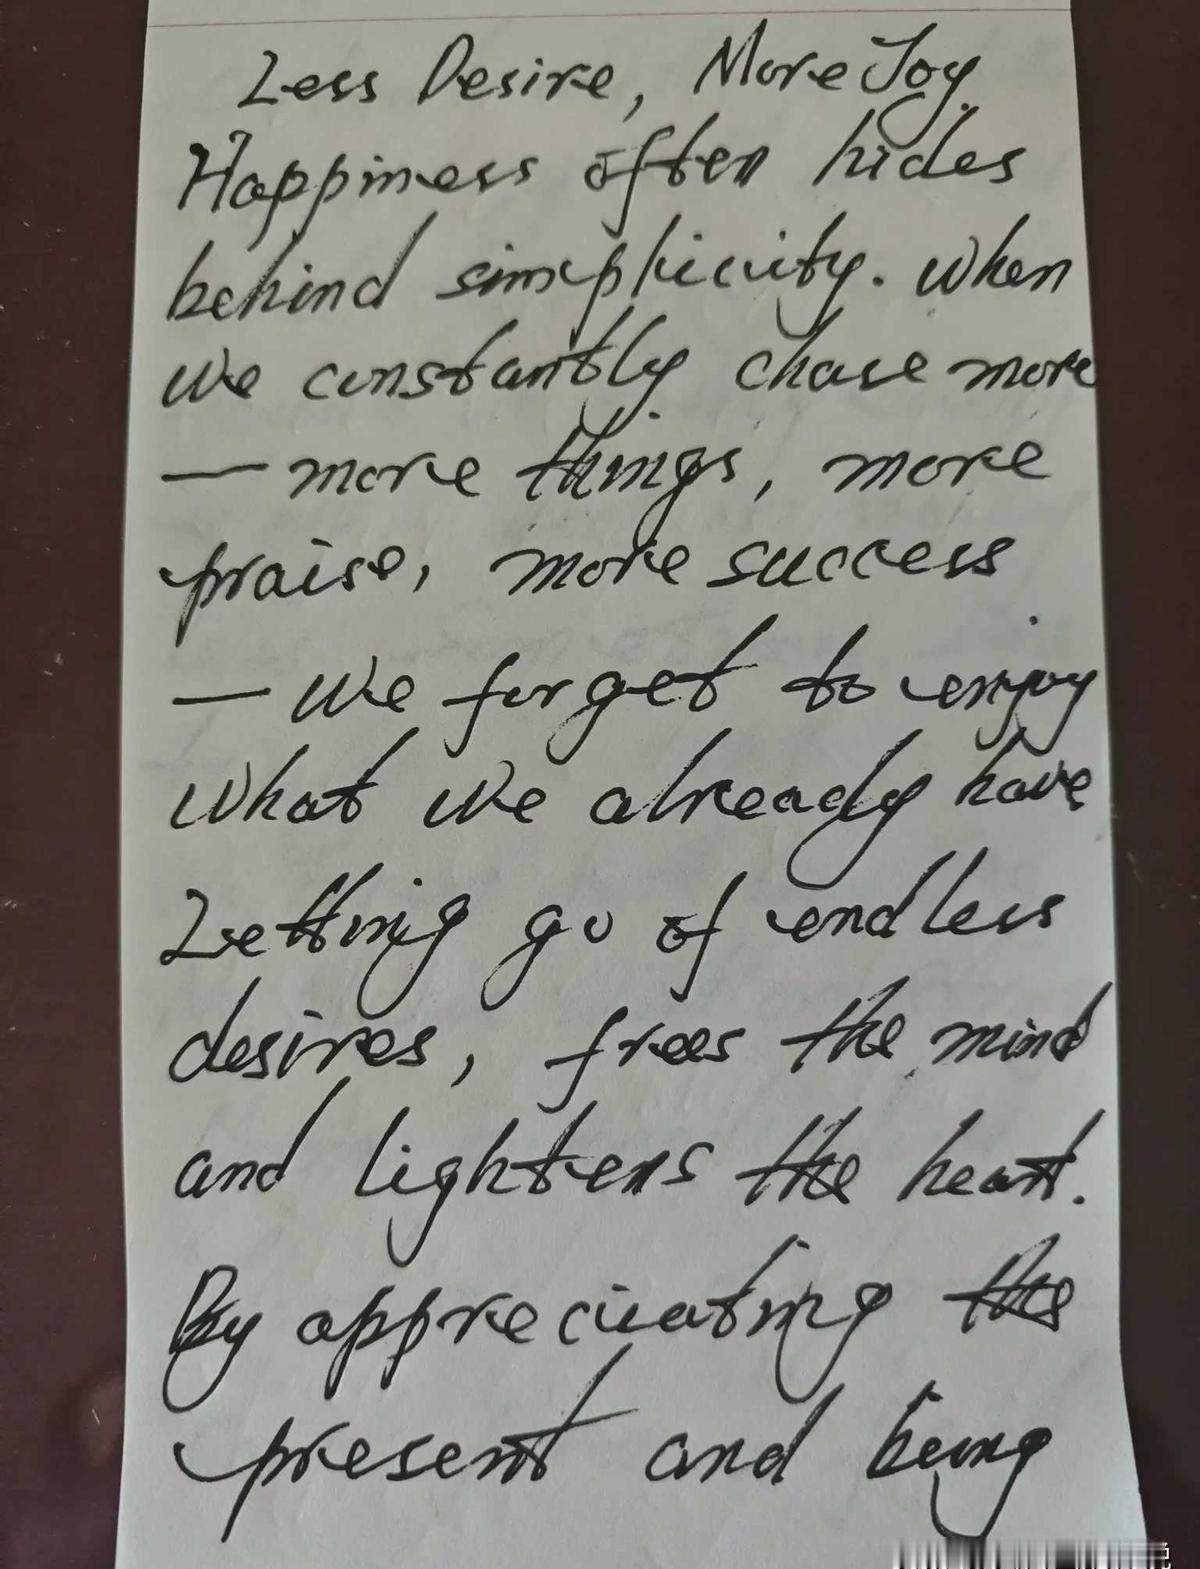 Less Desire, More Joy.
Happiness often hides
behind simplicity. When
we constantly chase more
— more things, more
praise, more success
— we forget to enjoy
what we already have
Letting go of endless
desires, frees the mind
and lightens the heart.
By appreciating the
present and being